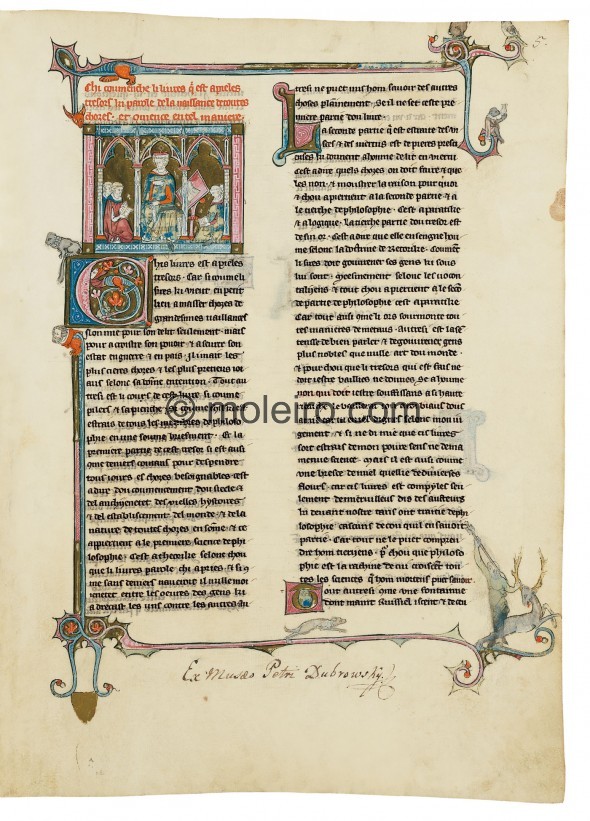 Chi coumenche li liures q̃ est apieles
tresors ki parole de la naissance de toutes
choses · et quence en tel maniere
Chis liures est apieles
tresors · Car si coume li
sires ki vient en petit
lieu amasser chozes de
grandesimes uaillances
non mie pour son delit seulement · mais
pour acroistre son pooir · & a seurer son
estat en guerre & en pais · Il i met les
plus cieres chozes & les plus precieus ioi
aus selonc sa boine entention · Tout au
tresi est li cours de cest liure si coume
estrais de tous les membres de philoso
phie en une soume briesment · Et la
premiere partie de cest tresor si est ausi
que deniers contans pour despendre
tous iours es chozes besoignables · cest
adire dou commencement dou siecle &
del anchijenetet des vielles hystores
& del establissement del monde · & de la
nature de toutes chozes en some · & ce
appiertient a le premiere science de phi
losophie · Cest a theorike selonc chou
que li liures parole chi apries · & si q̃
me sans deniers naueroit il nulle moi
ienetet entre les oeures des gens ki
a drecast les uns contre les autres · Au
tresi ne puet nus hom sauoir des autres
choses plainnement · Se il ne set ceste pre
miere partie dou liure ·
La seconde partie q̃ est estraite des vi
ses & des uiertus est de pieres presci
euses ki dounent a home delit en uiertu
cest a dire quels chozes on doit faire & que
les non · & moustre la raison pour quoi
& chou apiertient a la seconde partie & a
le tierche de philosophie · Cest a pratike
& a logique · La tierche partie dou tresor est
de fin or · Cest a dire que elle ensengne lou
me selonc la dotrine de Retorike · coument
li sires doit gouuerner ses gens ki sous
lui sont · Meesmement selonc les us con
talijens & tout chou apiertient a le seco̅
de partie de philosophie cest a pratike
Car tout ausi come li ors sourmonte tou
tes manieres de metaus · Autresi est la si
tensse de bien parler & de gouuierner gens
plus noblez que nulle art dou monde ·
& pour chou que li tresors qui est ci ne
doit iestre bailliés ne dounes se a houme
non qui soit iestre souffissans a si haute
gement · & si ne di mie que cis liures
soit estrais de mon poure sens ne de ma
menue science · Mais il est ausi coume
une bresce de miel quellie de diuierses
flours · Car cis liures est compyles seu
lement de meruilleus dis des aucteurs
ki deuant nostre tans ont traitie de phi
losophie cascuns de cou qui en sauoit
partie · Car toute ne le puet compren
dre hom terijens · p̃ chou que philoso
phie est la racine de cui croiscent tou
tes les sciences q̃ hom mortens puet sauoir
Tout autresi que une fontainne
dont maint ruissiel iscent & decu
5.
Ex Musæo Petri Dubrowsky.
© moleiro.com